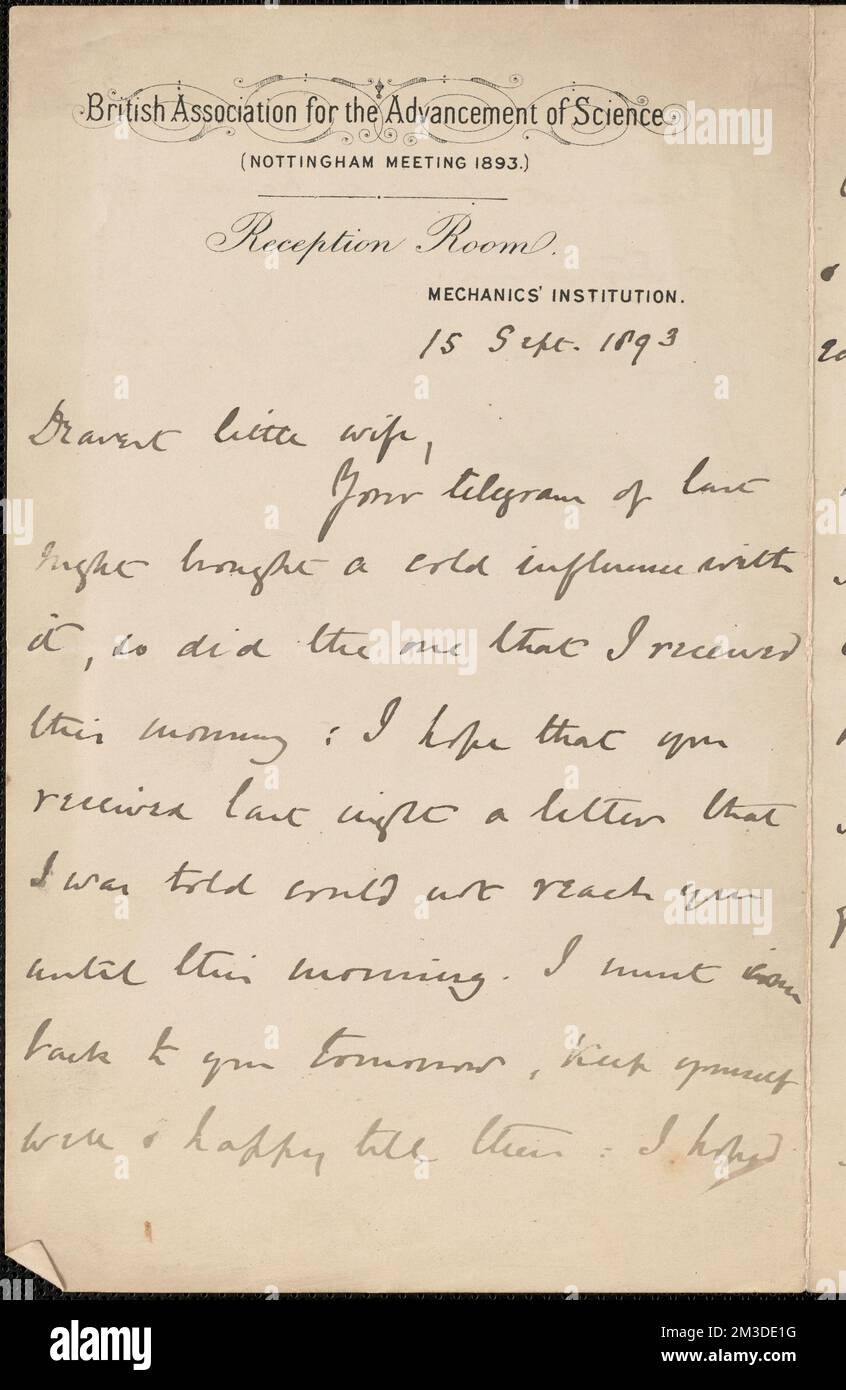 British Association for the Advancement of Science
(NOTTINGHAM MEETING 1893.)
Reception Room.
MECHANICS' INSTITUTION.
15 Sept. 1893
Dearest little wife,
Your telegram of last
night brought a cold influence with
it, so did the one that I received
this morning: I hope that you
received last night a letter that
I was told could not reach you
until this morning. I must
back to you tomorrow, keep yourself
well & happy till then: I hoped
alamy
Image ID: 2M3DE1G
www.alamy.com